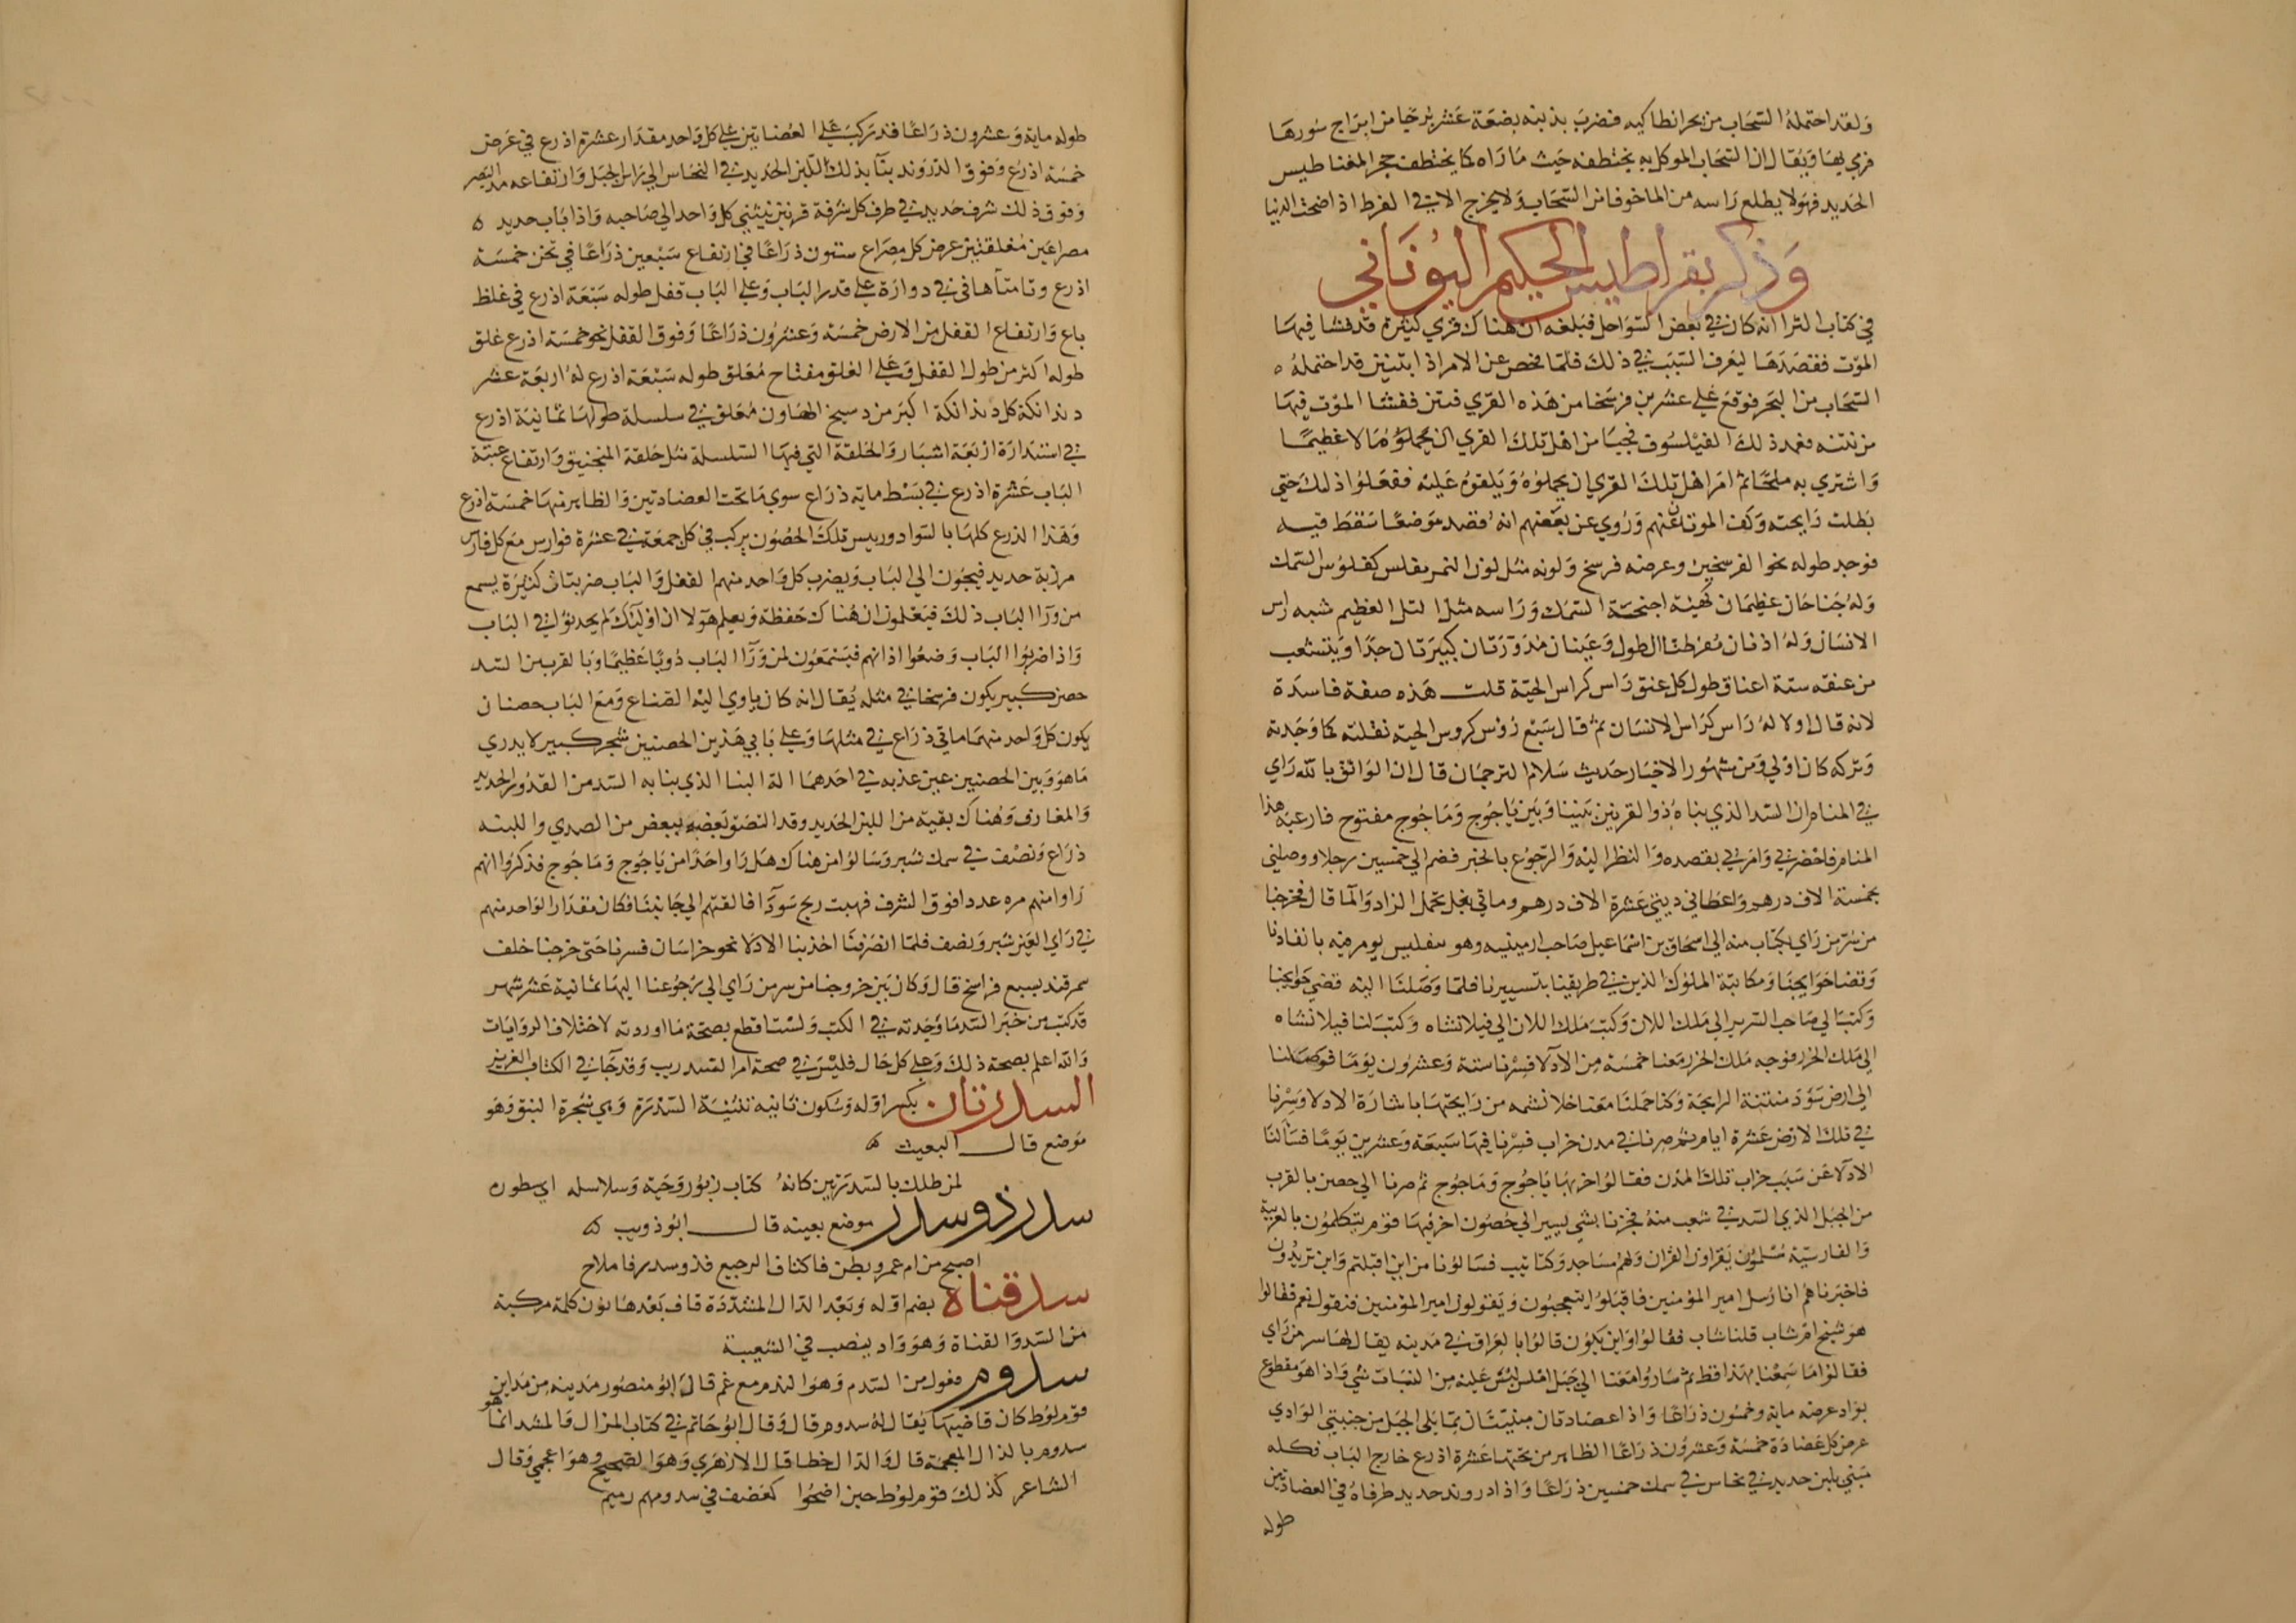 ولقد احتمله السحاب من بحر انطاكيه فضرب بذنبه بضعة عشر برجا من ابراج سورها
فرمي بها ويقال ان السحاب الموكل به يختطفه حيث ما راه كما يختطف حجر المغناطيس
الحديد فهو لا يطلع راسه من الماخوفا من السحاب ولا يخرج الا في الفرط اذا اضحت الدنيا
وذكر بقراطيس الحكيم اليوناني
في كتاب الثرا انه كان في بعض السواحل فبلغه ان هناك قري كثيرة قد فشا فيها
الموت فقصدها ليعرف السبب في ذلك فلما فحص عن الامر اذا بتنين قد احتمله
السحاب من البحر فوقع علي عشرين فرسخا من هذه القري فنتن ففشا الموت فيها
من نتنه فعمد ذلك الفيلسوف فجبا من اهل تلك القري ان يحملوه مالا عظيما
واشتري به ملحا ثم امر اهل تلك القري ان يحملوه ويلقوه عليه ففعلوا ذلك حتي
بطلت رايحته وكف الموتان عنهم وروي عن بعضهم انه قصد موضعا سقط فيه
فوجد طوله نحوا لفرسخين وعرضه فرسخ ولونه مثل لون النمر مفلس كفلوس السمك
وله جناحان عظيمان كهيئة اجنحة السمك وراسه مثل التل العظيم شبه راس
الانسان وله اذنان مفرطتا الطول وعينان مدورتان كبيرتان جدا ويتشعب
من عنقه ستة اعناق طول كل عنق راس كراس الحية قلت هذه صفة فاسدة
لانه قال اولا له راس كراس الانسان ثم قال سبع روس كروس الحية نقلته كما وجدته
وتركه كان اولي ومن مشهور الاخبار حديث سلام الترجمان قال ان الواثق بالله راي
في المنام ان السد الذي بناه ذوا لقرنين بيننا وبين ياجوج وماجوج مفتوح فارعبه هذا
المنام فاحضرني وامرني بقصده والنظر اليه والرجوع بالخبر فضم الي خمسين رجلا ووصلني
بخمسة الاف درهم واعطاني ديتي عشرة الاف درهم وماتي بغل تحمل الزاد والما قال فخرجنا
من سر من راي بكتاب منه الي اسحاق بن اسماعيل صاحب ارمينيه وهو بتفليس يومر فيه بانفاذنا
وقضا حوايجنا ومكاتبة الملوك الذين في طريقنا بتسييرنا فلما وصلنا اليه قضي حوايجنا
وكتب الي صاحب السرير الي ملك اللان وكتب ملك اللان الي فيلانشاه وكتب لنا فيلانشاه
الي ملك الخزر فوجه ملك الخزر معنا خمسة من الادلا فسرنا ستة وعشرون يوما فوصلنا
الي ارض سودمنتنة الرايحة وكنا حملنا معنا خلا نشمه من رايحتها باشارة الادلا وسرنا
في تلك الارض عشرة ايام ثم صرنا في مدن خراب فسرنا فيها سبعة وعشرين يوما فسالنا
الادلا عن سبب خراب تلك المدن فقالوا خربها ياجوج وماجوج ثم صرنا الي حصن بالقرب
من الجبل الذي السد في شعب منه فجزنا بشي يسير الي حصون اخر فيها قوم يتكلمون بالعربية
والفارسية مسلمون يقراون القران ولهم مساجد وكتاتيب فسالونا من اين اقبلتم واين تريدون
فاخبرناهم انا رسل امير المؤمنين فاقبلوا يتعجبون ويقولون امير المؤمنين فنقول نعم فقالوا
هو شيخ ام شاب قلنا شاب فقالوا واين يكون قالوا بالعراق في مدينه يقال لها سر من راي
فقالوا ما سمعنا بهذا قط ثم ساروا معنا الي جبل املس ليس عليه من النبات شي واذا هو مقطوع
بواد عرضه مايه وخمسون ذراعا واذا عضادتان مبنيتان مما يلي الجبل من جنبتي الوادي
عرض كل عضادة خمسة وعشرون ذراعا الظاهر من تحتها عشرة اذرع خارج الباب وكله
مبني بلبن حديد في نحاس في سمك خمسين ذراعا واذا دروند حديد طرفاه في العضادتين
طوله
طوله مايه وعشرون ذراعا قد تركب علي العضاتين علي كل واحد مقدار عشرة اذرع في عرض
خمسة اذرع وفوق الدروند بنا بذلك اللبن الحديد في النحاس الي راس الجبل وارتفاعه مد البصر
وفوق ذلك شرف حديد في طرف كل شرفة قرنين ينثني كل واحد الي صاحبه واذا باب حديد
مصراعين مغلقتين عرض كل مصراع ستون ذراعا في ارتفاع سبعين ذراعا في ثخن خمسة
اذرع وقامتاها في دوارة علي قدر الباب وعلي الباب قفل طوله سبعة اذرع في غلظ
باع وارتفاع القفل من الارض خمسة وعشرون ذراعا وفوق القفل نحو خمسة اذرع غلق
طوله اكثر من طول القفل وعلي الغلق مفتاح معلق طوله سبعة اذرع له اربعة عشر
دندانكة كل دندانكة اكبر من دسيج الهاون معلق في سلسلة طولها ثمانية اذرع
في استدارة اربعة اشبار والحلقة التي فيها السلسلة مثل حلقة المنجنيق وارتفاع عتبة
الباب عشرة اذرع في بسط مايه ذراع سوي ما تحت العضادتين والظاهر منها خمسة اذرع
وهذا الذرع كلها بالسواد وريس تلك الحصون يركب في كل جمعة في عشرة فوارس مع كل فارس
مرزبة حديد فيجون الي الباب ويضرب كل واحد منهم القفل والباب ضربتان كثيرة يسمع
من ورا الباب ذلك فيعلمون ان هناك حفظة ويعلم هولا ان اوليك لم يحدثوا في الباب
واذا ضربوا الباب وضعوا اذانهم فيسمعون لمن ورا الباب دويا عظيما وبالقرب من السد
حصن كبير يكون فرسخا في مثله يقال انه كان ياوي اليه الصناع ومع الباب حصنان
يكون كل واحد منهما ماتي ذراع في مثلها وعلي بابي هذين الحصنين شجر كبير لا يدري
ما هو وبين الحصنين عين عذبه في احدهما الة البنا الذي بنا به السد من القدور الحديد
والمغارف وهناك بقية من اللبن الحديد وقد التصق بعضه ببعض من الصدي واللبنه
ذراع ونصف في سمك شبر وسالوا من هناك هل راوا احدا من ياجوج وماجوج فذكروا انهم
راوا منهم مره عددا فوق الشرف فهبت ريح سودا فالقتهم الي جانبنا فكان مقدار الواحد منهم
في راي العين شبر ونصف فلما انصرفنا اخذ بنا الادلا نحو خراسان فسرنا حتي خرجنا خلف
سمرقند بسبع فراسخ قال وكان بين خروجنا من سر من راي الي رجوعنا اليها ثمانية عشر شهر
قد كتبت من خبر السد ما وجدته في الكتب ولست اقطع بصحة ما اوردته لاختلاف الروايات
والله اعلم بصحة ذلك وعلي كل حال فليس في صحة امر السد ريب وقد جا في الكتاب العزيز
السدرتان بكسر اوله وسكون ثانيه تثنية السدرة وهي شجرة النبق وهو
موضع قال البعيث
لمن طلل بالسدرتين كانه كتاب زبور وحيه وسلاسله اي سطوره
سدر ذو سدر موضع بعينه قال ابو ذويب
اصبح من ام عمرو بطن فاكناف الرجيع فذو سدر فاملاح
سدقناة بضم اوله وبعد الدال المشددة قاف بعدها نون كلمة مركبة
من السد والقناة وهو واد ينصب في الشعيبة
سدوم فعول من السدم وهو الندم مع غم قال ابو منصور مدينه من مداين
قوم لوط كان قاضيها يقال له سدوم قال وقال ابو حاتم في كتاب المزال والمفسد انما هو
سدوم بالذال المعجمة قال والدال خطا قال الازهري وهو الصحيح وهو اعجمي وقال
الشاعر كذلك قوم لوط حين اضحوا كعصف في سدومهم رميم